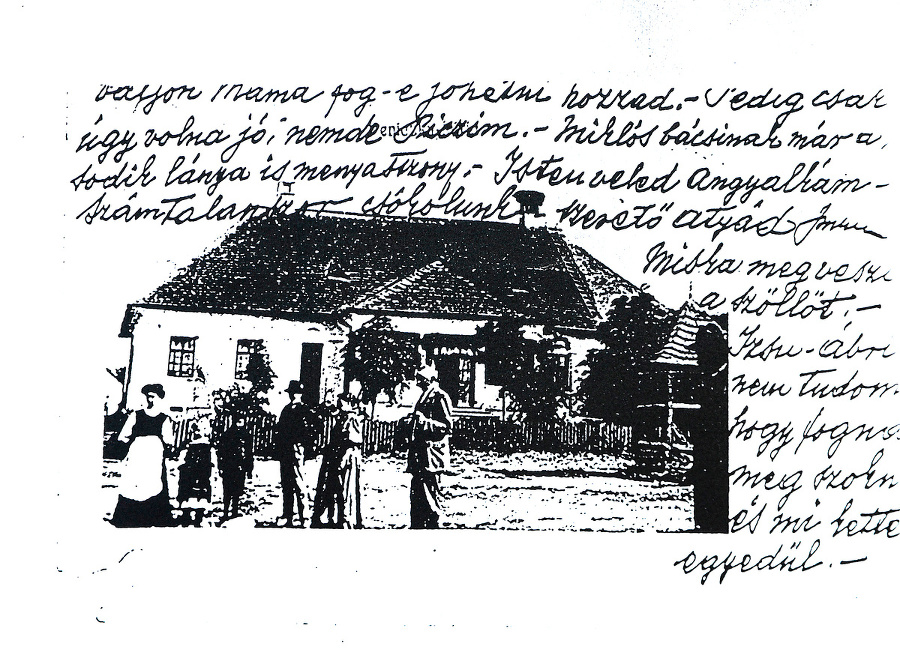 vajjon Mama fog-e jöhetni hozzád.- Pedig csak
úgy volna jó, nemde Picim.- Miklós bácsinak már a
sodik lánya is menyasszony.- Isten veled Angyalkám-
számtalanszor csókolunk szerető atyád
Miska megvesz
a szőllőt.-
Izsu-Ábri
nem tudom
hogy fogn
meg szokn
és mi kette
egyedül.-